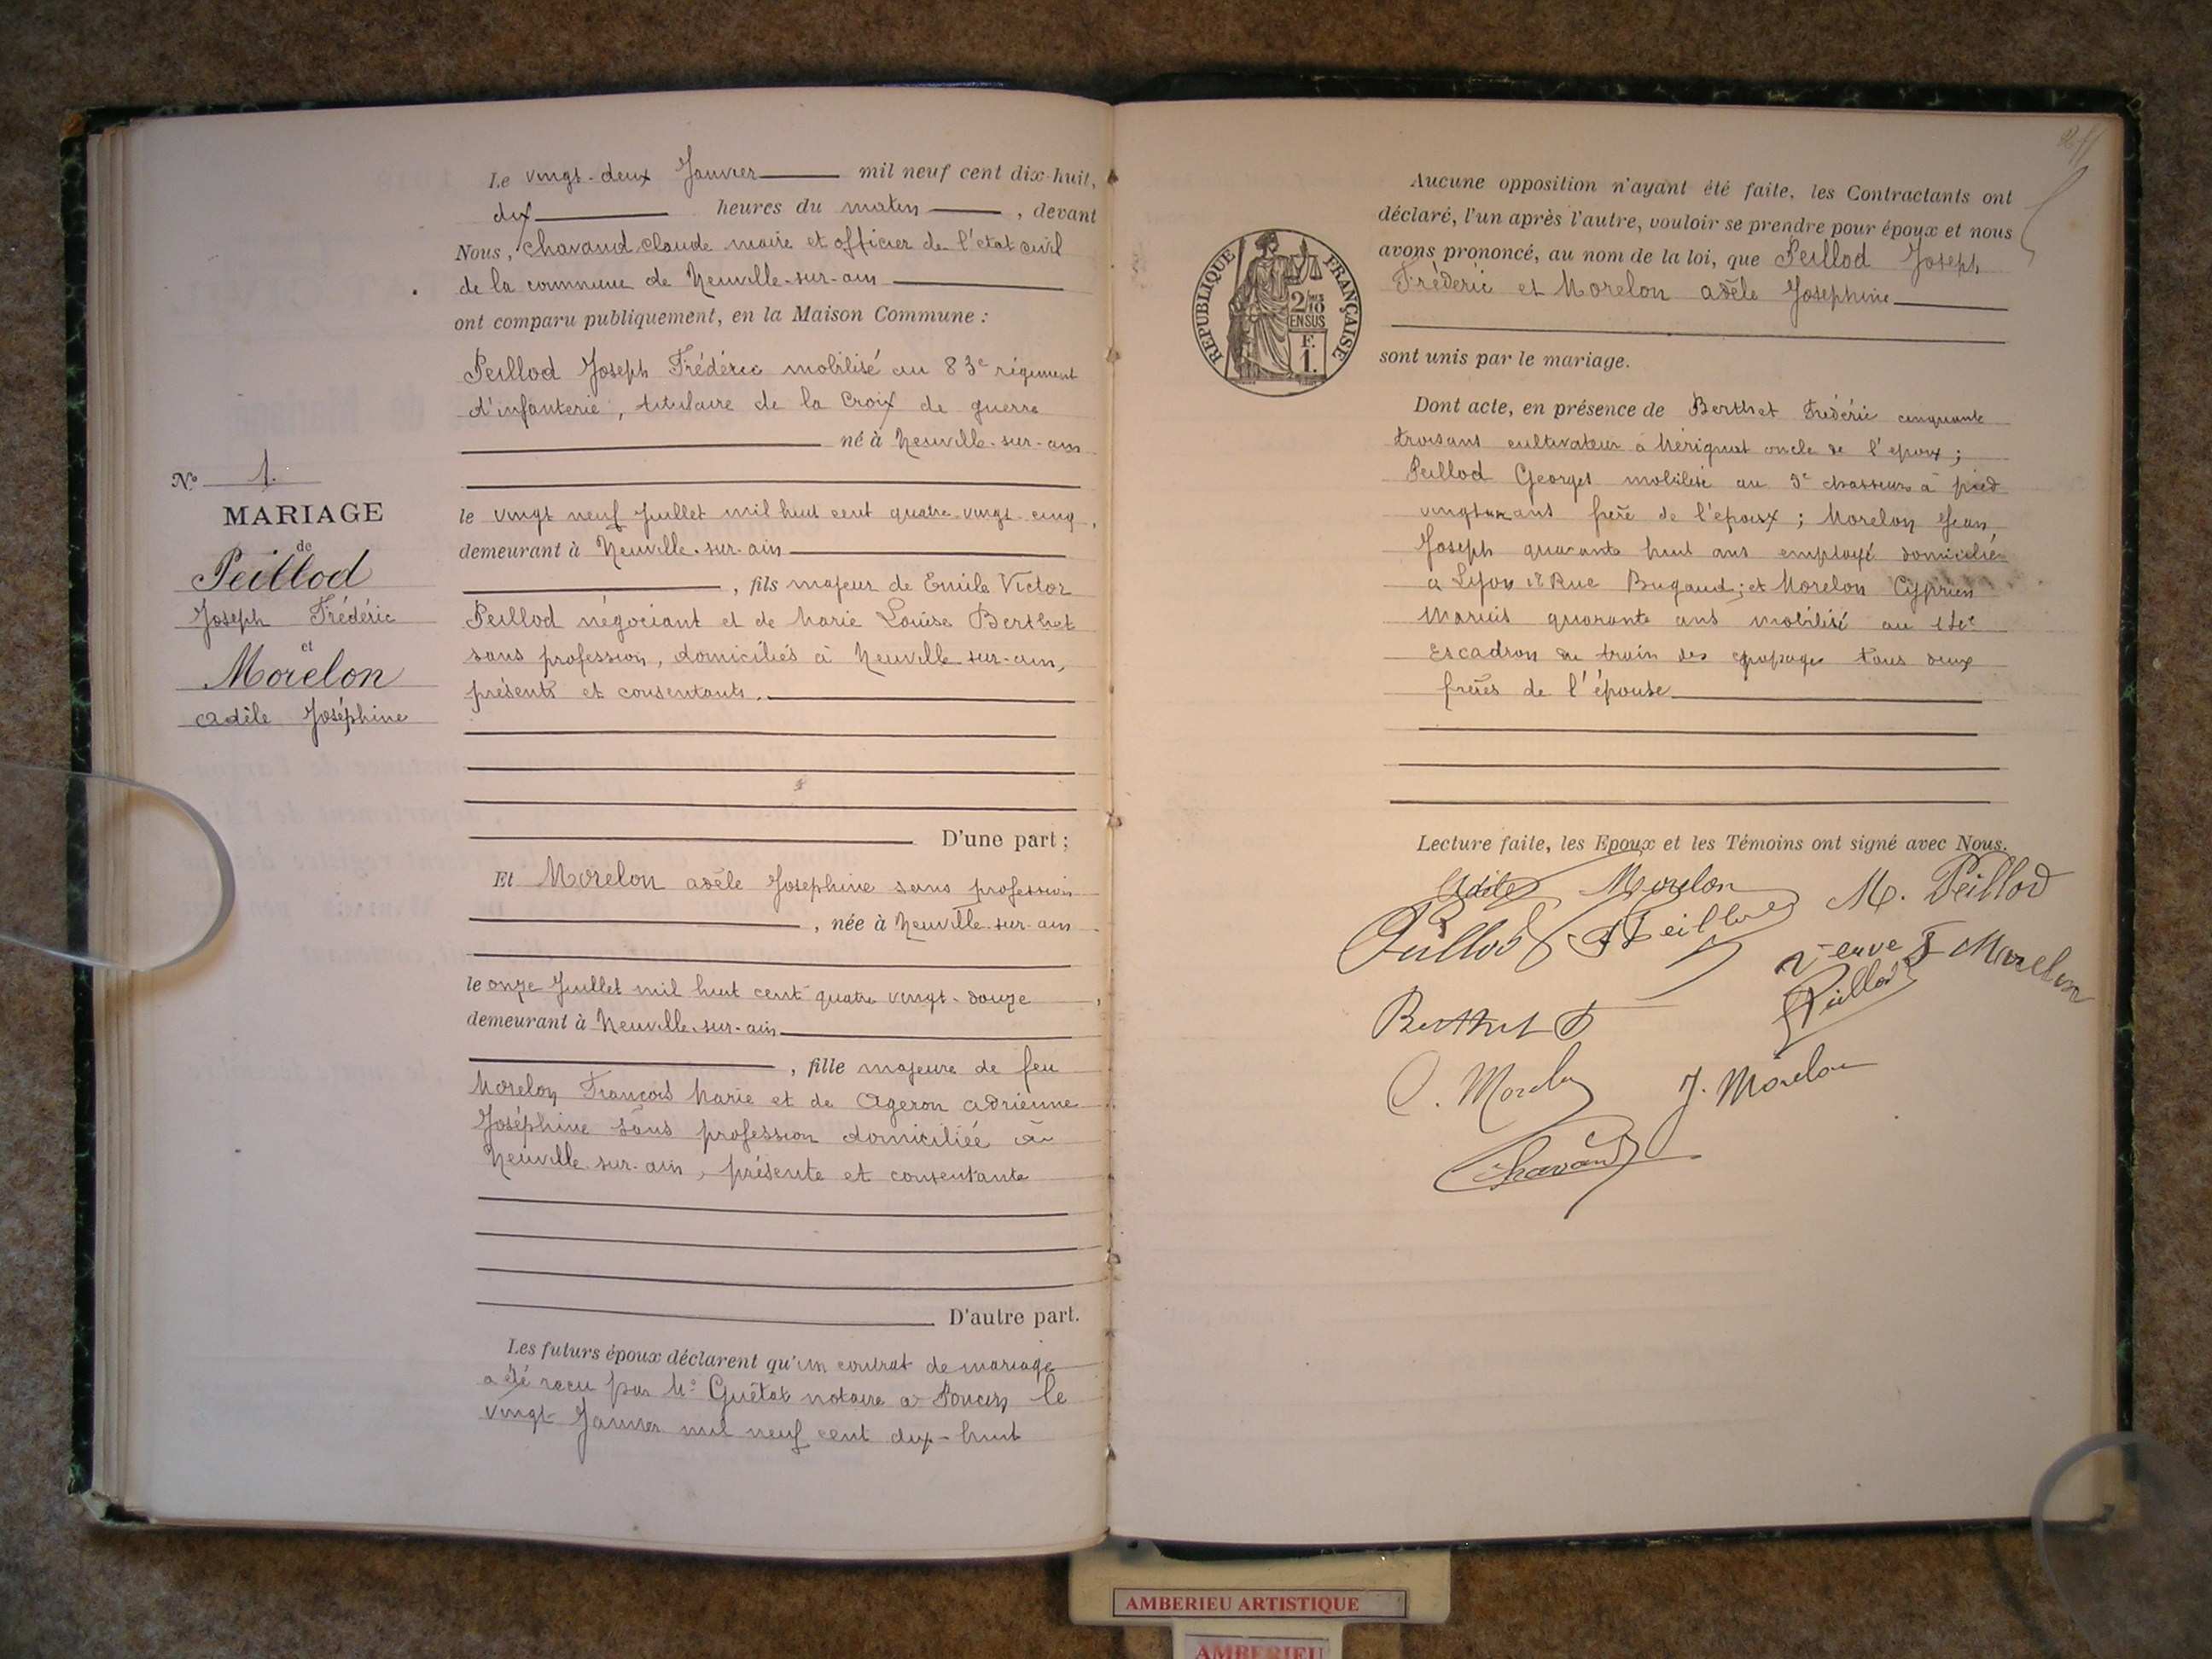 Le vingt-deux Janvier mil neuf cent dix-huit,
dix heures du matin, devant
Nous, Chavand Claude maire et officier de l'état civil
de la commune de Neuville-sur-ain
ont comparu publiquement, en la Maison Commune :
Peillod Joseph Frédéric mobilisé au 83e régiment
d'infanterie, titulaire de la Croix de guerre
né à Neuville-sur-ain
le vingt neuf Juillet mil huit cent quatre-vingt-cinq,
demeurant à Neuville-sur-ain
, fils majeur de Emile Victor
Peillod négociant et de Marie Louise Berthet
sans profession, domiciliés à Neuville sur-ain,
présents et consentants.
D'une part ;
Et Morelon adèle Josephine sans profession
, née à Neuville-sur-ain
le onze Juillet mil huit cent quatre vingt-douze,
demeurant à Neuville-sur-ain
, fille majeure de feu
Morelon François Marie et de Ageron adrienne
Joséphine sans profession domiciliée à
Neuville-sur-ain, présente et consentante
D'autre part.
Les futurs époux déclarent qu'un contrat de mariage
a été recu par Me Guétat notaire a Poncin le
vingt Janvier mil neuf cent dix-huit
No 1.
MARIAGE
de
Peillod
Joseph Frédéric
et
Morelon
adèle Joséphine
Aucune opposition n'ayant été faite, les Contractants ont
déclaré, l'un après l'autre, vouloir se prendre pour époux et nous
avons prononcé, au nom de la loi, que Peillod Joseph
Frédéric et Morelon adèle Josephine
sont unis par le mariage.
REPUBLIQUE FRANÇAISE
2/10
EN SUS
F.
1.
Dont acte, en présence de Berthet Frédéric cinquante
trois ans cultivateur à Mérignat oncle de l'epoux ;
Peillod Georges mobilisé au chasseurs à pied
ans frère de l'epoux ; Morelon Jean
Joseph quarante huit ans employé domicilié
a Lyon Rue Bugeaud ; et Morelon Cyprien
Marius quarante ans mobilisé au
Escadron du train des équipages tous deux
frères de l'épouse
Lecture faite, les Epoux et les Témoins ont signé avec Nous.
Adèle Morelon
M. Peillod
Peillod
Peillod
Veuve F Morelon
Peillod
Berthet F
C. Morelon
J. Morelon
Chavand
AMBERIEU ARTISTIQUE
AMBERIEU